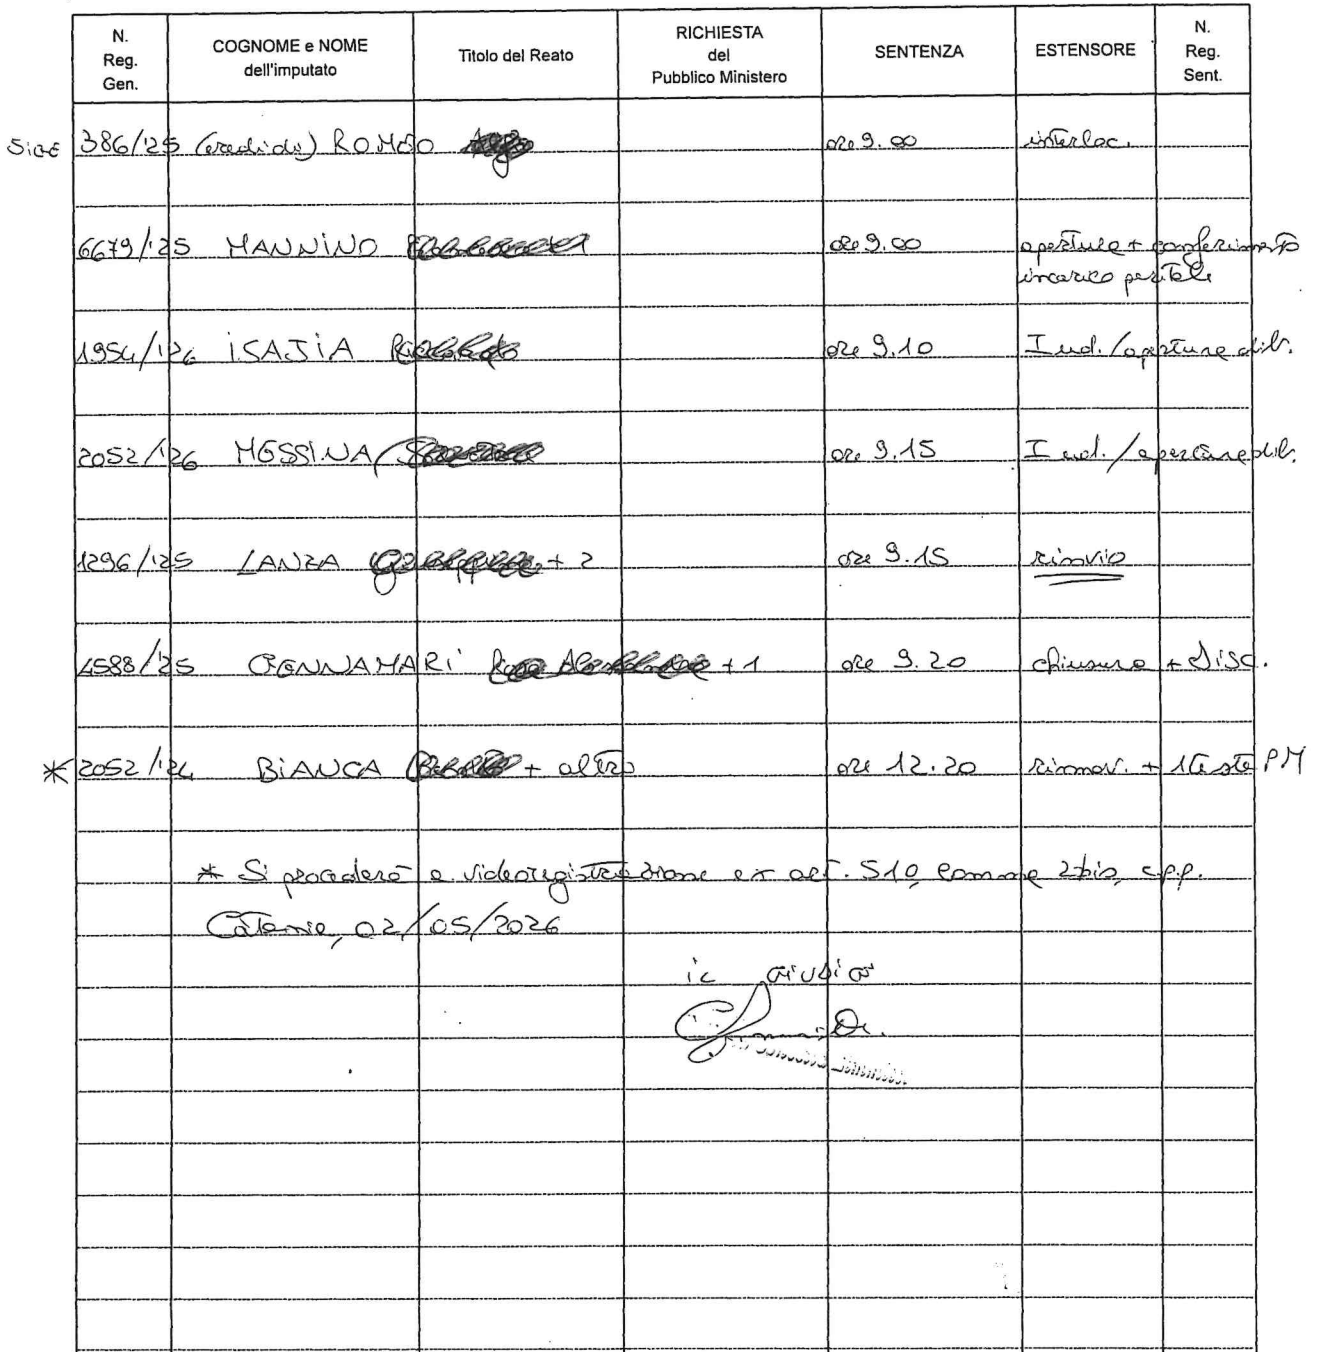 N. Reg. Gen. COGNOME e NOME dell'imputato Titolo del Reato RICHIESTA del Pubblico Ministero SENTENZA ESTENSORE N. Reg. Sent.
SIGE 386/'25 (eredi di) ROMEO ore 9.00 interloc.
6679/'25 MANNINO ore 9.00 apertura + conferimento
incarico peritale
1954/'26 ISAJIA ore 9.10 I ud./apertura dib.
2052/'26 MESSINA ore 9.15 I ud./apertura dib.
1296/'25 LANZA + 2 ore 9.15 rinvio
4588/'25 GENNAMARI' + 1 ore 9.20 chiusura + disc.
* 2052/'24 BIANCA + altro ore 12.20 rinnov. + 1 teste PM
* Si procederà a videoregistrazione ex art. 510, comma 2 bis, c.p.p.
Catania, 02/05/2026
IL GIUDICE